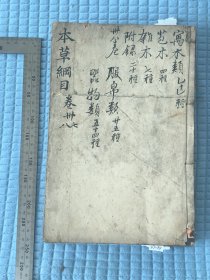 寓木類十二種
苞木四種
雜木七種
附錄二十種
卅八卷 服帛類廿五種
器物類五十四種
本草綱目 卷卅七八